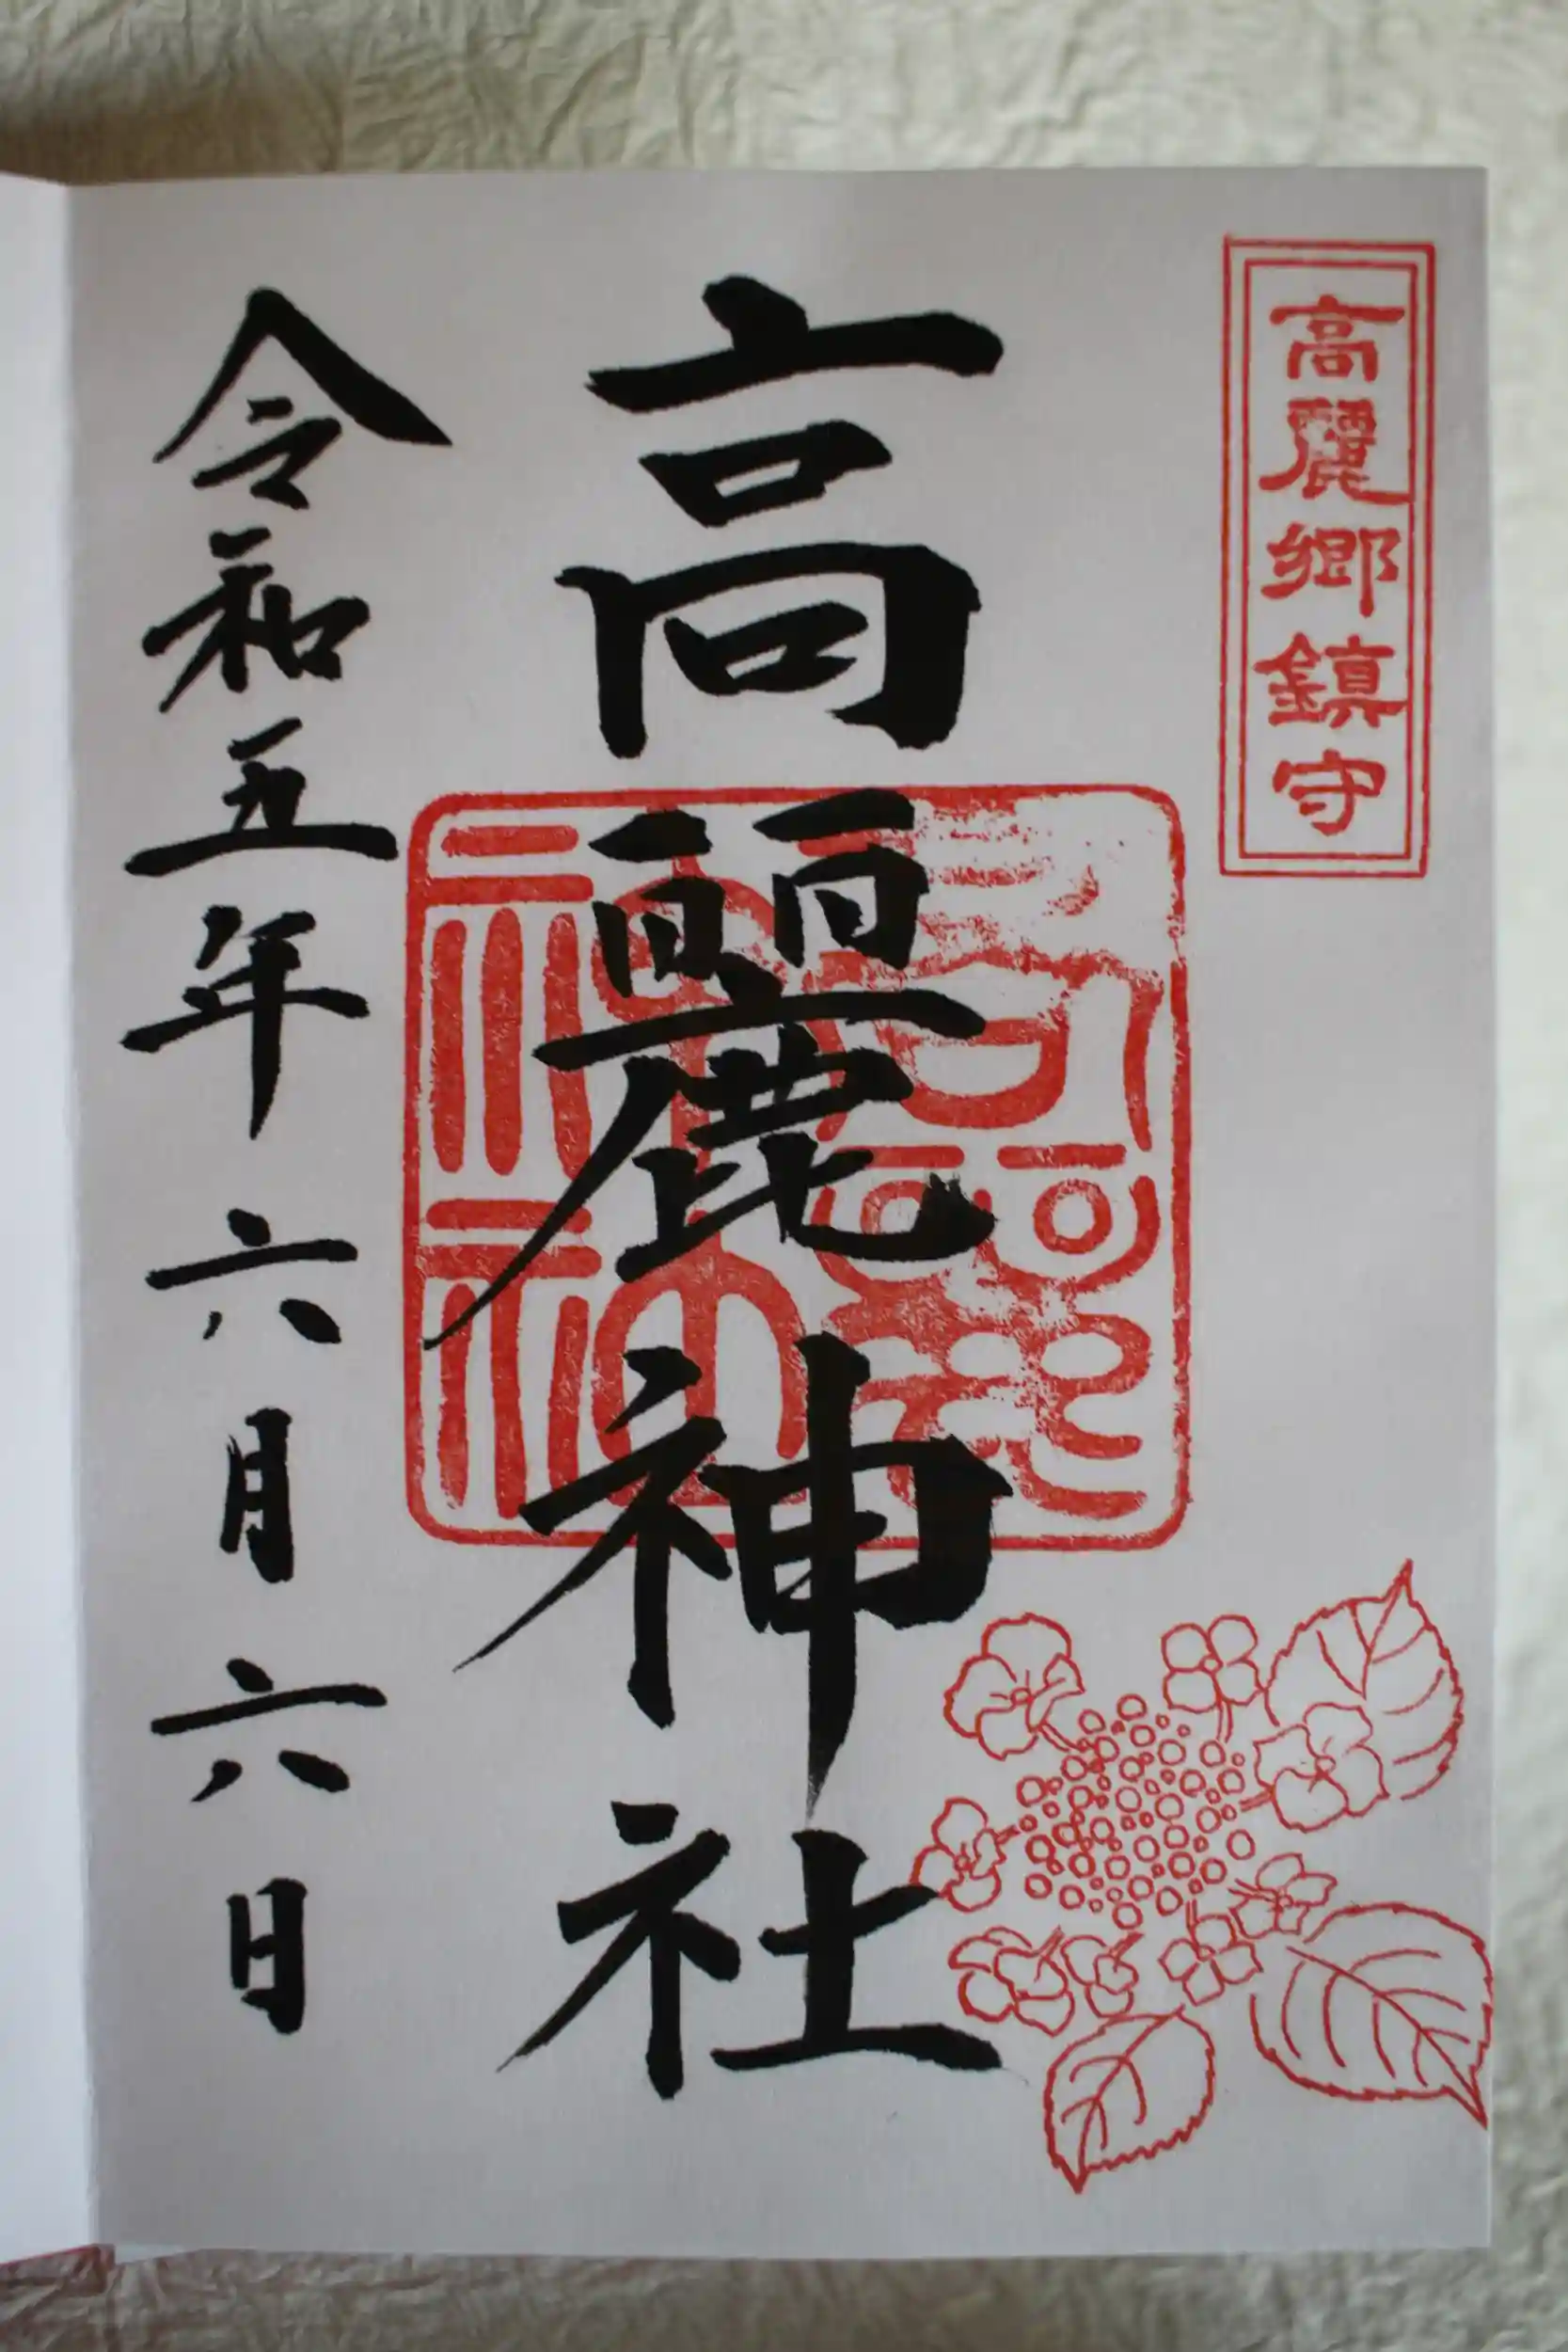 高麗郷鎮守
高麗神社
高麗神社
令和五年六月六日